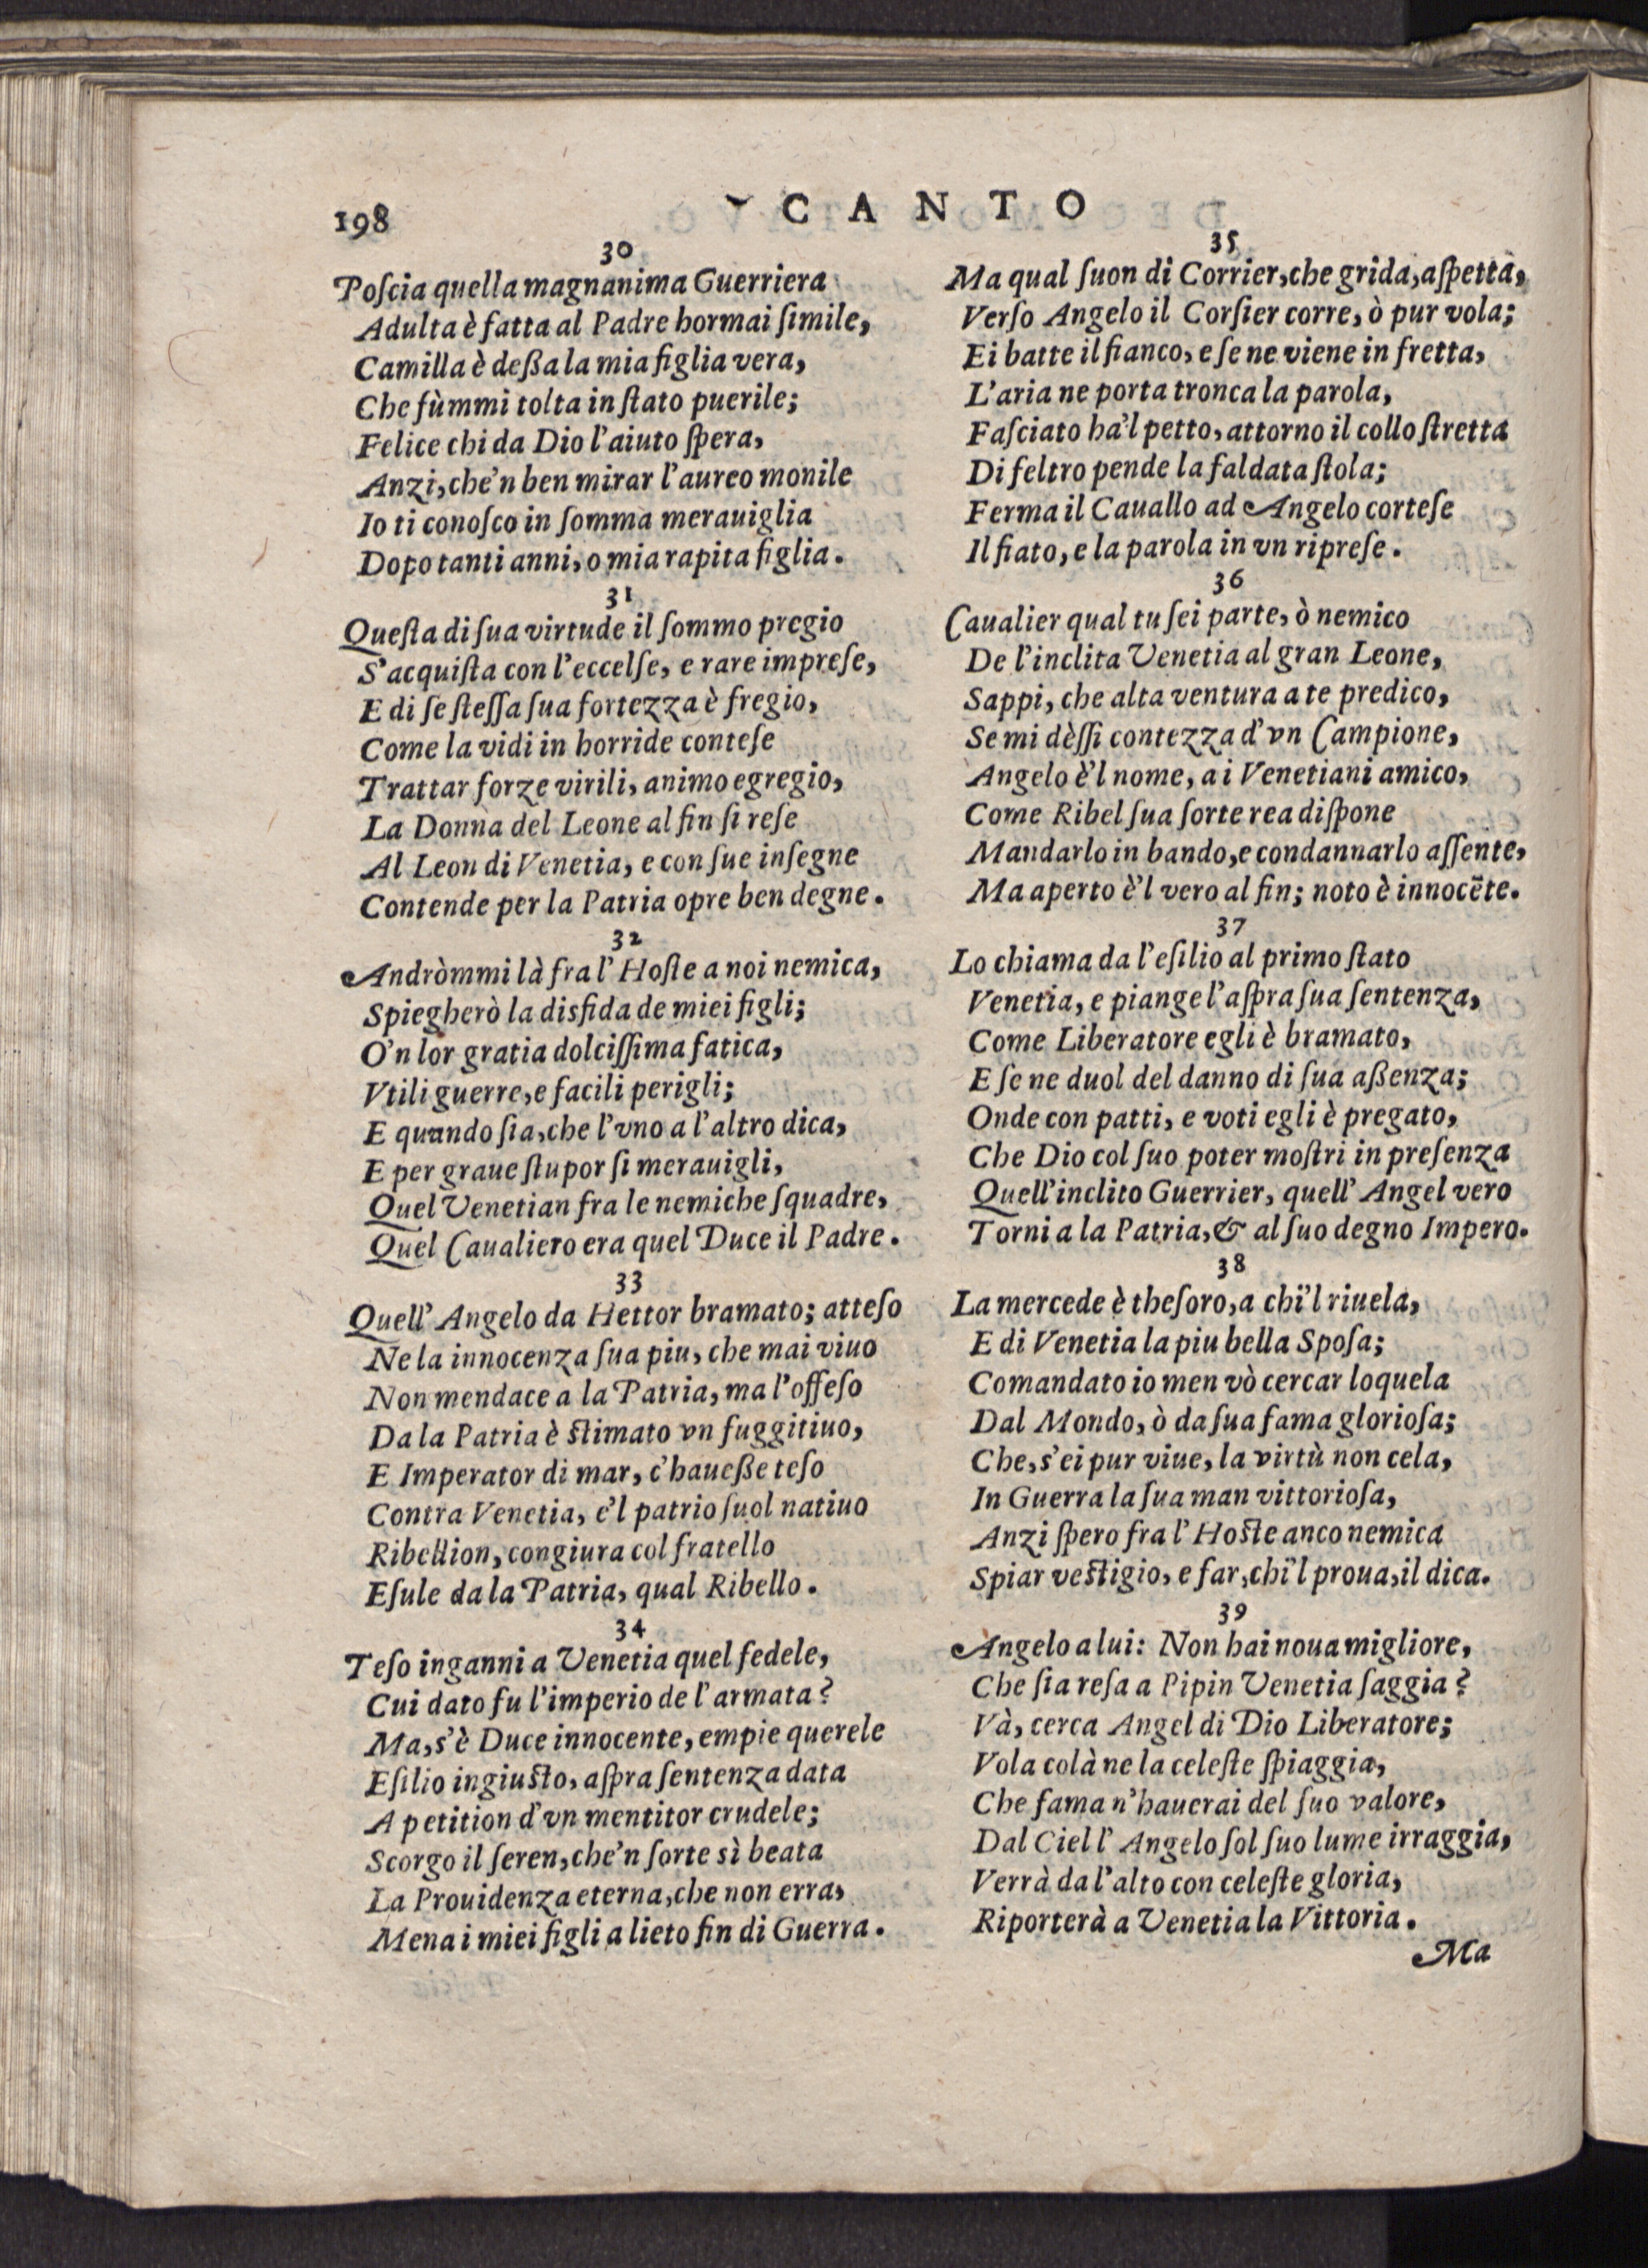 198
CANTO
30
Poſcia quella magnanima Guerriera
Adulta è fatta al Padre hormai ſimile,
Camilla è deßa la mia figlia vera,
Che fùmmi tolta in ſtato puerile;
Felice chi da Dio l'aiuto ſpera,
Anzi, che'n ben mirar l'aureo monile
Io ti conoſco in ſomma merauiglia
Dopo tanti anni, o mia rapita figlia.
31
Queſta di ſua virtude il ſommo pregio
S'acquiſta con l'eccelſe, e rare impreſe,
E di ſe ſteſſa ſua fortezza è fregio,
Come la vidi in horride conteſe
Trattar forze virili, animo egregio,
La Donna del Leone al fin ſi reſe
Al Leon di Venetia, e con ſue inſegne
Contende per la Patria opre ben degne.
32
Andròmmi là fra l'Hoſte a noi nemica,
Spiegherò la disfida de miei figli;
O'n lor gratia dolciſſima fatica,
Vtili guerre, e facili perigli;
E quando ſia, che l'vno a l'altro dica,
E per graue ſtupor ſi merauigli,
Quel Venetian fra le nemiche ſquadre,
Quel Caualiero era quel Duce il Padre.
33
Quell'Angelo da Hettor bramato; atteſo
Ne la innocenza ſua piu, che mai viuo
Non mendace a la Patria, ma l'offeſo
Da la Patria è ſtimato vn fuggitiuo,
E Imperator di mar, c'haueße teſo
Contra Venetia, e'l patrio ſuol natiuo
Ribellion, congiura col fratello
Eſule da la Patria, qual Ribello.
34
Teſo inganni a Venetia quel fedele,
Cui dato fu l'imperio de l'armata?
Ma, s'è Duce innocente, empie querele
Eſilio ingiuſto, aſpra ſentenza data
A petition d'vn mentitor crudele;
Scorgo il ſeren, che'n ſorte sì beata
La Prouidenza eterna, che non erra,
Mena i miei figli a lieto fin di Guerra.
35
Ma qual ſuon di Corrier, che grida, aſpetta,
Verſo Angelo il Corſier corre, ò pur vola;
Ei batte il fianco, e ſe ne viene in fretta,
L'aria ne porta tronca la parola,
Faſciato ha'l petto, attorno il collo ſtretta
Di feltro pende la faldata ſtola;
Ferma il Cauallo ad Angelo corteſe
Il fiato, e la parola in vn ripreſe.
36
Caualier qual tu ſei parte, ò nemico
De l'inclita Venetia al gran Leone,
Sappi, che alta ventura a te predico,
Se mi dèſſi contezza d'vn Campione,
Angelo è'l nome, a i Venetiani amico,
Come Ribel ſua ſorte rea diſpone
Mandarlo in bando, e condannarlo aſſente,
Ma aperto è'l vero al fin; noto è innocẽte.
37
Lo chiama da l'eſilio al primo ſtato
Venetia, e piange l'aſpra ſua ſentenza,
Come Liberatore egli è bramato,
E ſe ne duol del danno di ſua aßenza;
Onde con patti, e voti egli è pregato,
Che Dio col ſuo poter moſtri in preſenza
Quell'inclito Guerrier, quell'Angel vero
Torni a la Patria, & al ſuo degno Impero.
38
La mercede è theſoro, a chi'l riuela,
E di Venetia la piu bella Spoſa;
Comandato io men vò cercar loquela
Dal Mondo, ò da ſua fama glorioſa;
Che, s'ei pur viue, la virtù non cela,
In Guerra la ſua man vittorioſa,
Anzi ſpero fra l'Hoſte anco nemica
Spiar veſtigio, e far, chi'l proua, il dica.
39
Angelo a lui: Non hai noua migliore,
Che ſia reſa a Pipin Venetia ſaggia?
Và, cerca Angel di Dio Liberatore;
Vola colà ne la celeſte ſpiaggia,
Che fama n'hauerai del ſuo valore,
Dal Ciel l'Angelo ſol ſuo lume irraggia,
Verrà da l'alto con celeſte gloria,
Riporterà a Venetia la Vittoria.
Ma